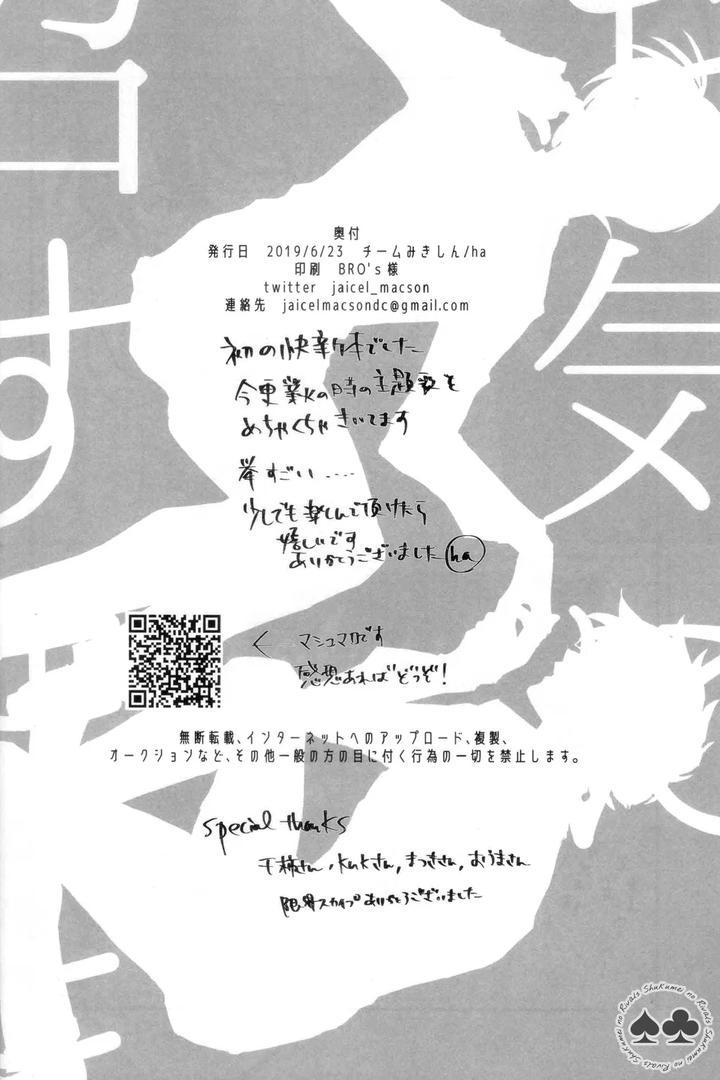 奥付
発行日　2019/6/23　チームみきしん/ha
印刷　BRO's様
twitter　jaicel_macson
連絡先　jaicelmacsondc@gmail.com
初の快新本でした
今更業火の時の主題歌を
めちゃくちゃきいてます
拳すごい....
少しでも楽しんで頂けたら
嬉しいです
ありがとうございました ha
← マシュマロです
感想あればどうぞ!
無断転載、インターネットへのアップロード、複製、
オークションなど、その他一般の方の目に付く行為の一切を禁止します。
special thanks
さん、kukさん、まつきさん、おうまさん
限界スカイプありがとうございました
Shukumei no Rivals Shukumei no Rivals
す
気